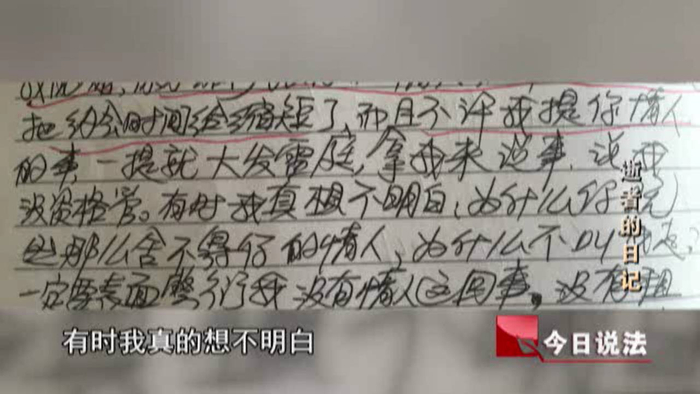 把约会时间给缩短了,而且不许我提你情人
的事一提就大发雷庭,拿我来说事,说我
没资格管。有时我真想不明白,为什么你
那么舍不得你的情人,为什么不
一定要表面 我没有情人这回事,没有
逝者的日记
有时我真的想不明白
今日说法